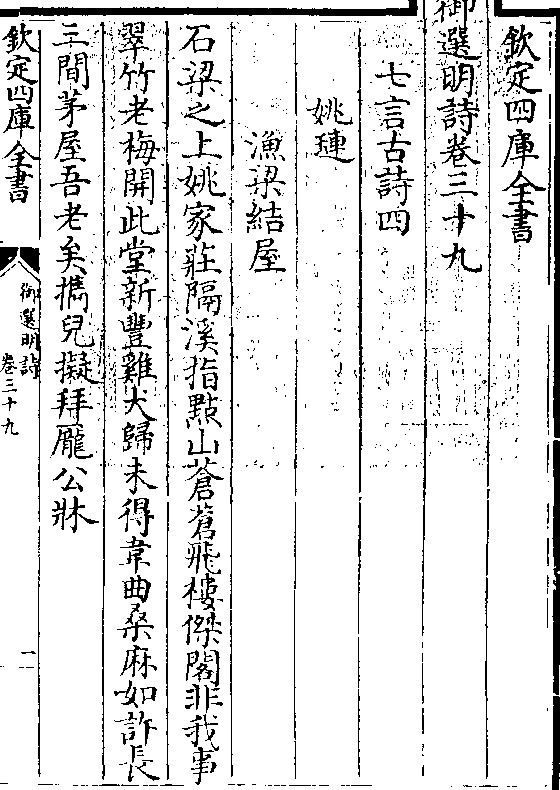 欽定四庫全書
御選明詩卷三十九
七言古詩四
姚璉
漁梁結屋
石梁之上姚家莊隔溪指點山蒼蒼飛樓傑閣非我事
翠竹老梅開此堂新豐雞犬歸未得韋曲桑麻如許長
三間茅屋吾老矣攜兒擬拜龐公牀
欽定四庫全書
御選明詩
卷三十九
一